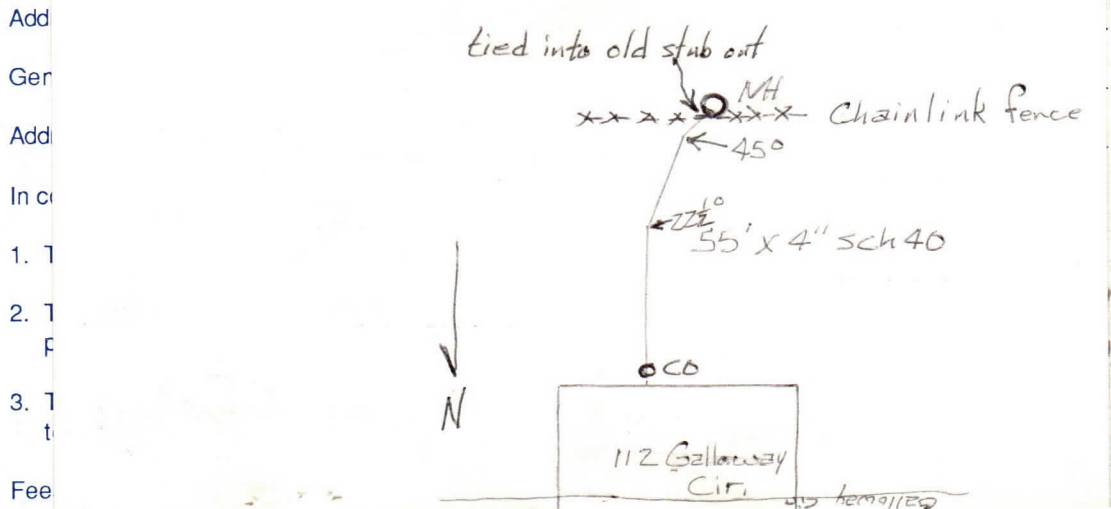 Add
Ger
Addi
In co
1. T
2. T
p
3. T
to
Fee
tied into old stub out
MH
x-x x x x-x-x- Chainlink fence
45°
22½°
55' x 4" sch 40
CO
N
112 Gallaway
Cir.
Galloway Cir